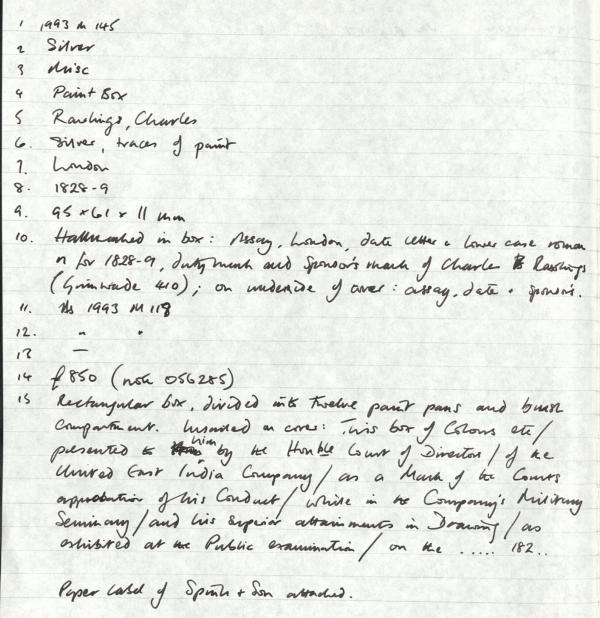 1 1993 M 145
2 Silver
3 Misc
4 Paint Box
5 Rawlings, Charles
6. Silver, traces of paint
7. London
8. 1828-9
9. 95 x 61 x 11 mm
10. Hallmarked in box: Assay, London, date letter a lower case roman
n for 1828-9, duty mark and sponsor's mark of Charles Rawlings
(Grimwade 410); on underside of cover: assay, date + sponsor's.
11. As 1993 M 118
12. " "
13 —
14 £850 (note 056285)
15 Rectangular box, divided into twelve paint pans and brush
compartment. Inscribed on cover: This box of Colours etc/
presented to him by the Honble Court of Director/of the
United East India Company/as a Mark of the Courts
approbation of his Conduct/while in the Company's Military
Seminary/and his superior attainments in Drawing/as
exhibited at the Public examination/on the ..... 182..
Paper label of Spink + Son attached.